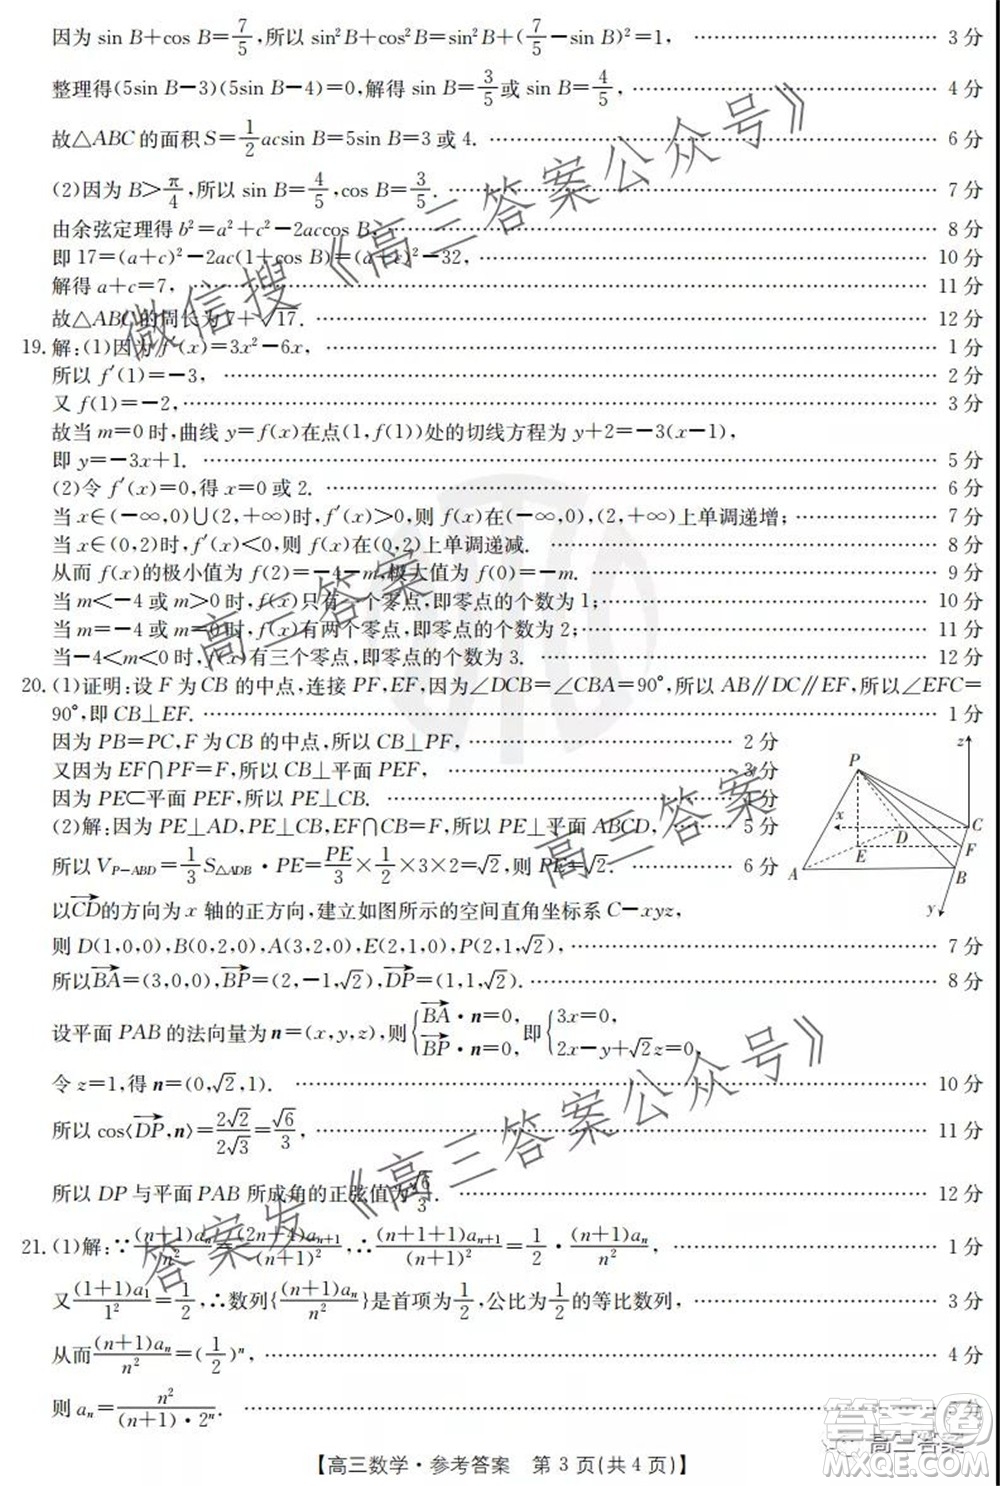 因为 sin B+cos B=7/5,所以 sin²B+cos²B=sin²B+(7/5−sin B)²=1, …… 3 分
整理得(5sin B−3)(5sin B−4)=0,解得 sin B=3/5或 sin B=4/5, …… 4 分
故△ABC 的面积 S=1/2acsin B=5sin B=3 或 4. …… 6 分
(2)因为 B>π/4,所以 sin B=4/5,cos B=3/5. …… 7 分
由余弦定理得 b²=a²+c²−2accos B, …… 8 分
即 17=(a+c)²−2ac(1+cos B)=(a+c)²−32, …… 10 分
解得 a+c=7, …… 11 分
故△ABC 的周长为 7+√17. …… 12 分
19. 解:(1)因为 f′(x)=3x²−6x, …… 1 分
所以 f′(1)=−3, …… 2 分
又 f(1)=−2, …… 3 分
故当 m=0 时,曲线 y=f(x)在点(1,f(1))处的切线方程为 y+2=−3(x−1),
即 y=−3x+1. …… 5 分
(2)令 f′(x)=0,得 x=0 或 2. …… 6 分
当 x∈(−∞,0)∪(2,+∞)时,f′(x)>0,则 f(x)在(−∞,0),(2,+∞)上单调递增; …… 7 分
当 x∈(0,2)时,f′(x)<0,则 f(x)在(0,2)上单调递减. …… 8 分
从而 f(x)的极小值为 f(2)=−4−m,极大值为 f(0)=−m. …… 9 分
当 m<−4 或 m>0 时,f(x)只有一个零点,即零点的个数为 1; …… 10 分
当 m=−4 或 m=0 时,f(x)有两个零点,即零点的个数为 2; …… 11 分
当−4<m<0 时,f(x)有三个零点,即零点的个数为 3. …… 12 分
20. (1)证明:设 F 为 CB 的中点,连接 PF,EF,因为∠DCB=∠CBA=90°,所以 AB∥DC∥EF,所以∠EFC=
90°,即 CB⊥EF. …… 1 分
因为 PB=PC,F 为 CB 的中点,所以 CB⊥PF, …… 2 分
又因为 EF∩PF=F,所以 CB⊥平面 PEF, …… 3 分
因为 PE⊂平面 PEF,所以 PE⊥CB. …… 分
(2)解:因为 PE⊥AD,PE⊥CB,EF∩CB=F,所以 PE⊥平面 ABCD, …… 5 分
所以 V_{P−ABD}=1/3S_{△ADB}·PE=PE/3×1/2×3×2=√2,则 PE=√2. …… 6 分
z P x C D F E A B y
以CD→的方向为 x 轴的正方向,建立如图所示的空间直角坐标系 C−xyz,
则 D(1,0,0),B(0,2,0),A(3,2,0),E(2,1,0),P(2,1,√2), …… 7 分
所以BA→=(3,0,0),BP→=(2,−1,√2),DP→=(1,1,√2). …… 8 分
设平面 PAB 的法向量为 n=(x,y,z),则{BA→·n=0, BP→·n=0,即{3x=0, 2x−y+√2z=0,
令 z=1,得 n=(0,√2,1). …… 10 分
所以 cos⟨DP→,n⟩=2√2/2√3=√6/3, …… 11 分
所以 DP 与平面 PAB 所成角的正弦值为√6/3. …… 12 分
21. (1)解:∵(n+1)aₙ/n²=(2n+4)aₙ₊₁/(n+1)²,∴(n+1+1)aₙ₊₁/(n+1)²=1/2·(n+1)aₙ/n², …… 1 分
又(1+1)a₁/1²=1/2,∴数列{(n+1)aₙ/n²}是首项为1/2,公比为1/2的等比数列, …… 3 分
从而(n+1)aₙ/n²=(1/2)ⁿ, …… 4 分
则 aₙ=n²/(n+1)·2ⁿ. …… 5 分
【高三数学·参考答案 第 3 页(共 4 页)】
微信搜《高三答案公众号》
高三答案
高三答案
答案发《高三答案公众号》
高三答案
答案圈
MXQE.COM